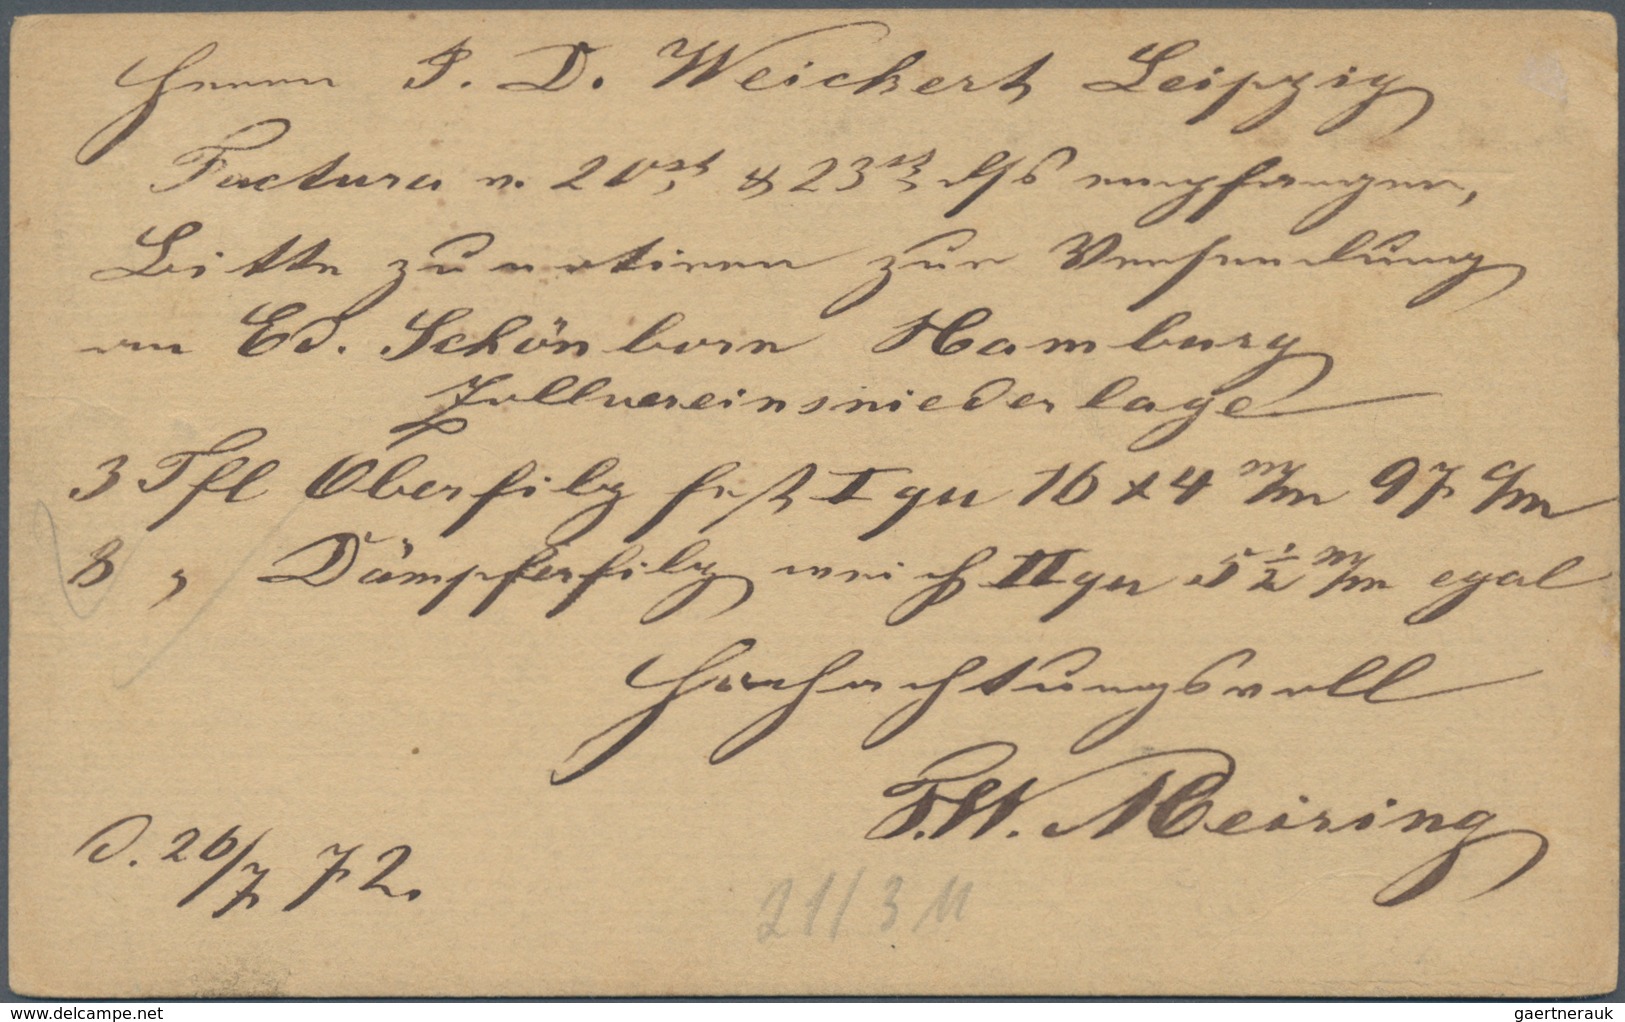 Herrn J. D. Weickert Leipzig
Factura v. 20st & 23st d/s empfangen,
Bitte zu notiren zur Versendung
an Ed. Schönborn Hamburg
Zollvereinsniederlage
3 Tfl Oberfilz fest I qu 16 x 4 m/m 97 c/m
8 " Dämpferfilz weich II qu 5 1/2 m/m egal
Hochachtungsvoll
F.W. Meiring
d. 26/7 72.
21/3 M
www.delcampe.net
gaertnerauk